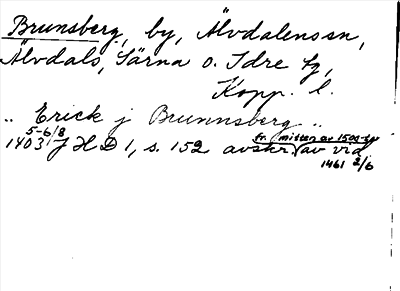 Brunsberg, by, Älvdalens sn,
Älvdals, Särna o. Idre tg,
Kopp. l.
„ Erick j Brunnsberg „
5-6/8 fr. mitten av 1500-t
1403 JHD 1, s. 152 avskr. av vid.
1461 2/6